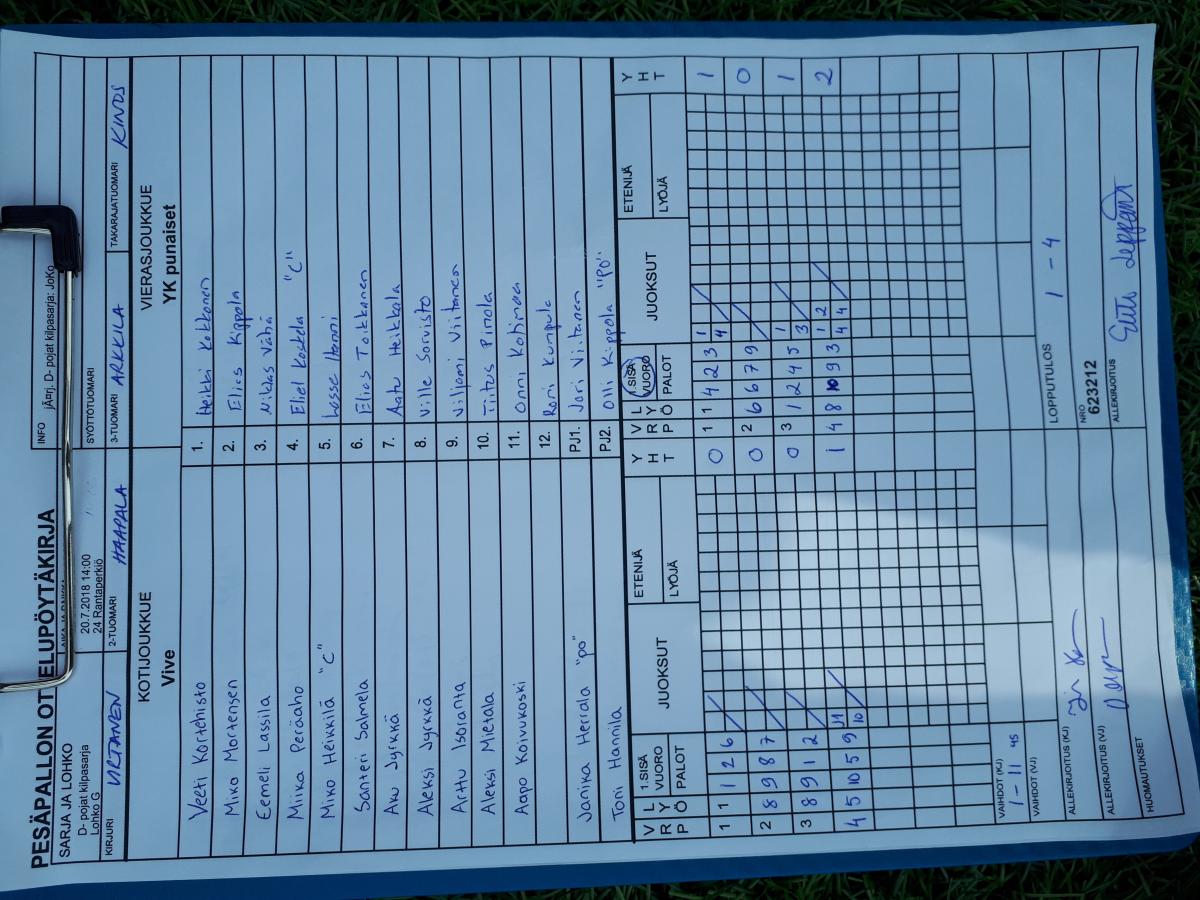 PESÄPALLON OTTELUPÖYTÄKIRJA
SARJA JA LOHKO
D- pojat kilpasarja
Lohko G
20.7.2018 14:00
24 Rantaperkiö
INFO
jÄrnj. D- pojat kilpasarja: JoKo
SYÖTTÖTUOMARI
KIRJURI VIRTANEN
2-TUOMARI HAAPALA
3-TUOMARI ARKKILA
TAKARAJATUOMARI KINOS
KOTIJOUKKUE
Vive
VIERASJOUKKUE
YK punaiset
Veeti Kortehisto 1. Heikki Kokkonen
Miko Mortensen 2. Elies Kippola
Eemeli Lassila 3. Niklas Vähä
Miika Peräaho 4. Eliel Koskela "C"
Miro Heikkilä "C" 5. Lasse Hanni
Santeri Salmela 6. Elias Toikkanen
Aku Jyrkkä 7. Aatu Heikkala
Aleksi Jyrkkä 8. Ville Sorvisto
Arttu Isoranta 9. Viljami Viitanen
Aleksi Mietala 10. Tiitus Pirnola
Aapo Koivukoski 11. Onni Kotinen
12. Roni Kumpula
Janika Herrala "PO" PJ1. Jari Viitanen
Toni Hannila PJ2. Olli Kippola "PO"
V R P
L Y Ö
1.SISÄ VUORO
PALOT
JUOKSUT
ETENIJÄ
LYÖJÄ
Y H T
V R P
L Y Ö
1.SISÄ VUORO
PALOT
JUOKSUT
ETENIJÄ
LYÖJÄ
Y H T
1 1 1 2 6 0 1 1 4 2 3 1 4 1
2 8 9 8 7 0 2 6 6 7 9 0
3 8 9 1 2 0 3 1 2 4 5 1 3 1
4 5 10 5 9 11 10 1 4 8 10 9 3 1 2 4 4 2
VAIHDOT (KJ)
1-11 4S
VAIHDOT (VJ)
LOPPUTULOS 1 - 4
ALLEKIRJOITUS (KJ)
ALLEKIRJOITUS (VJ)
NRO
623212
ALLEKIRJOITUS
HUOMAUTUKSET